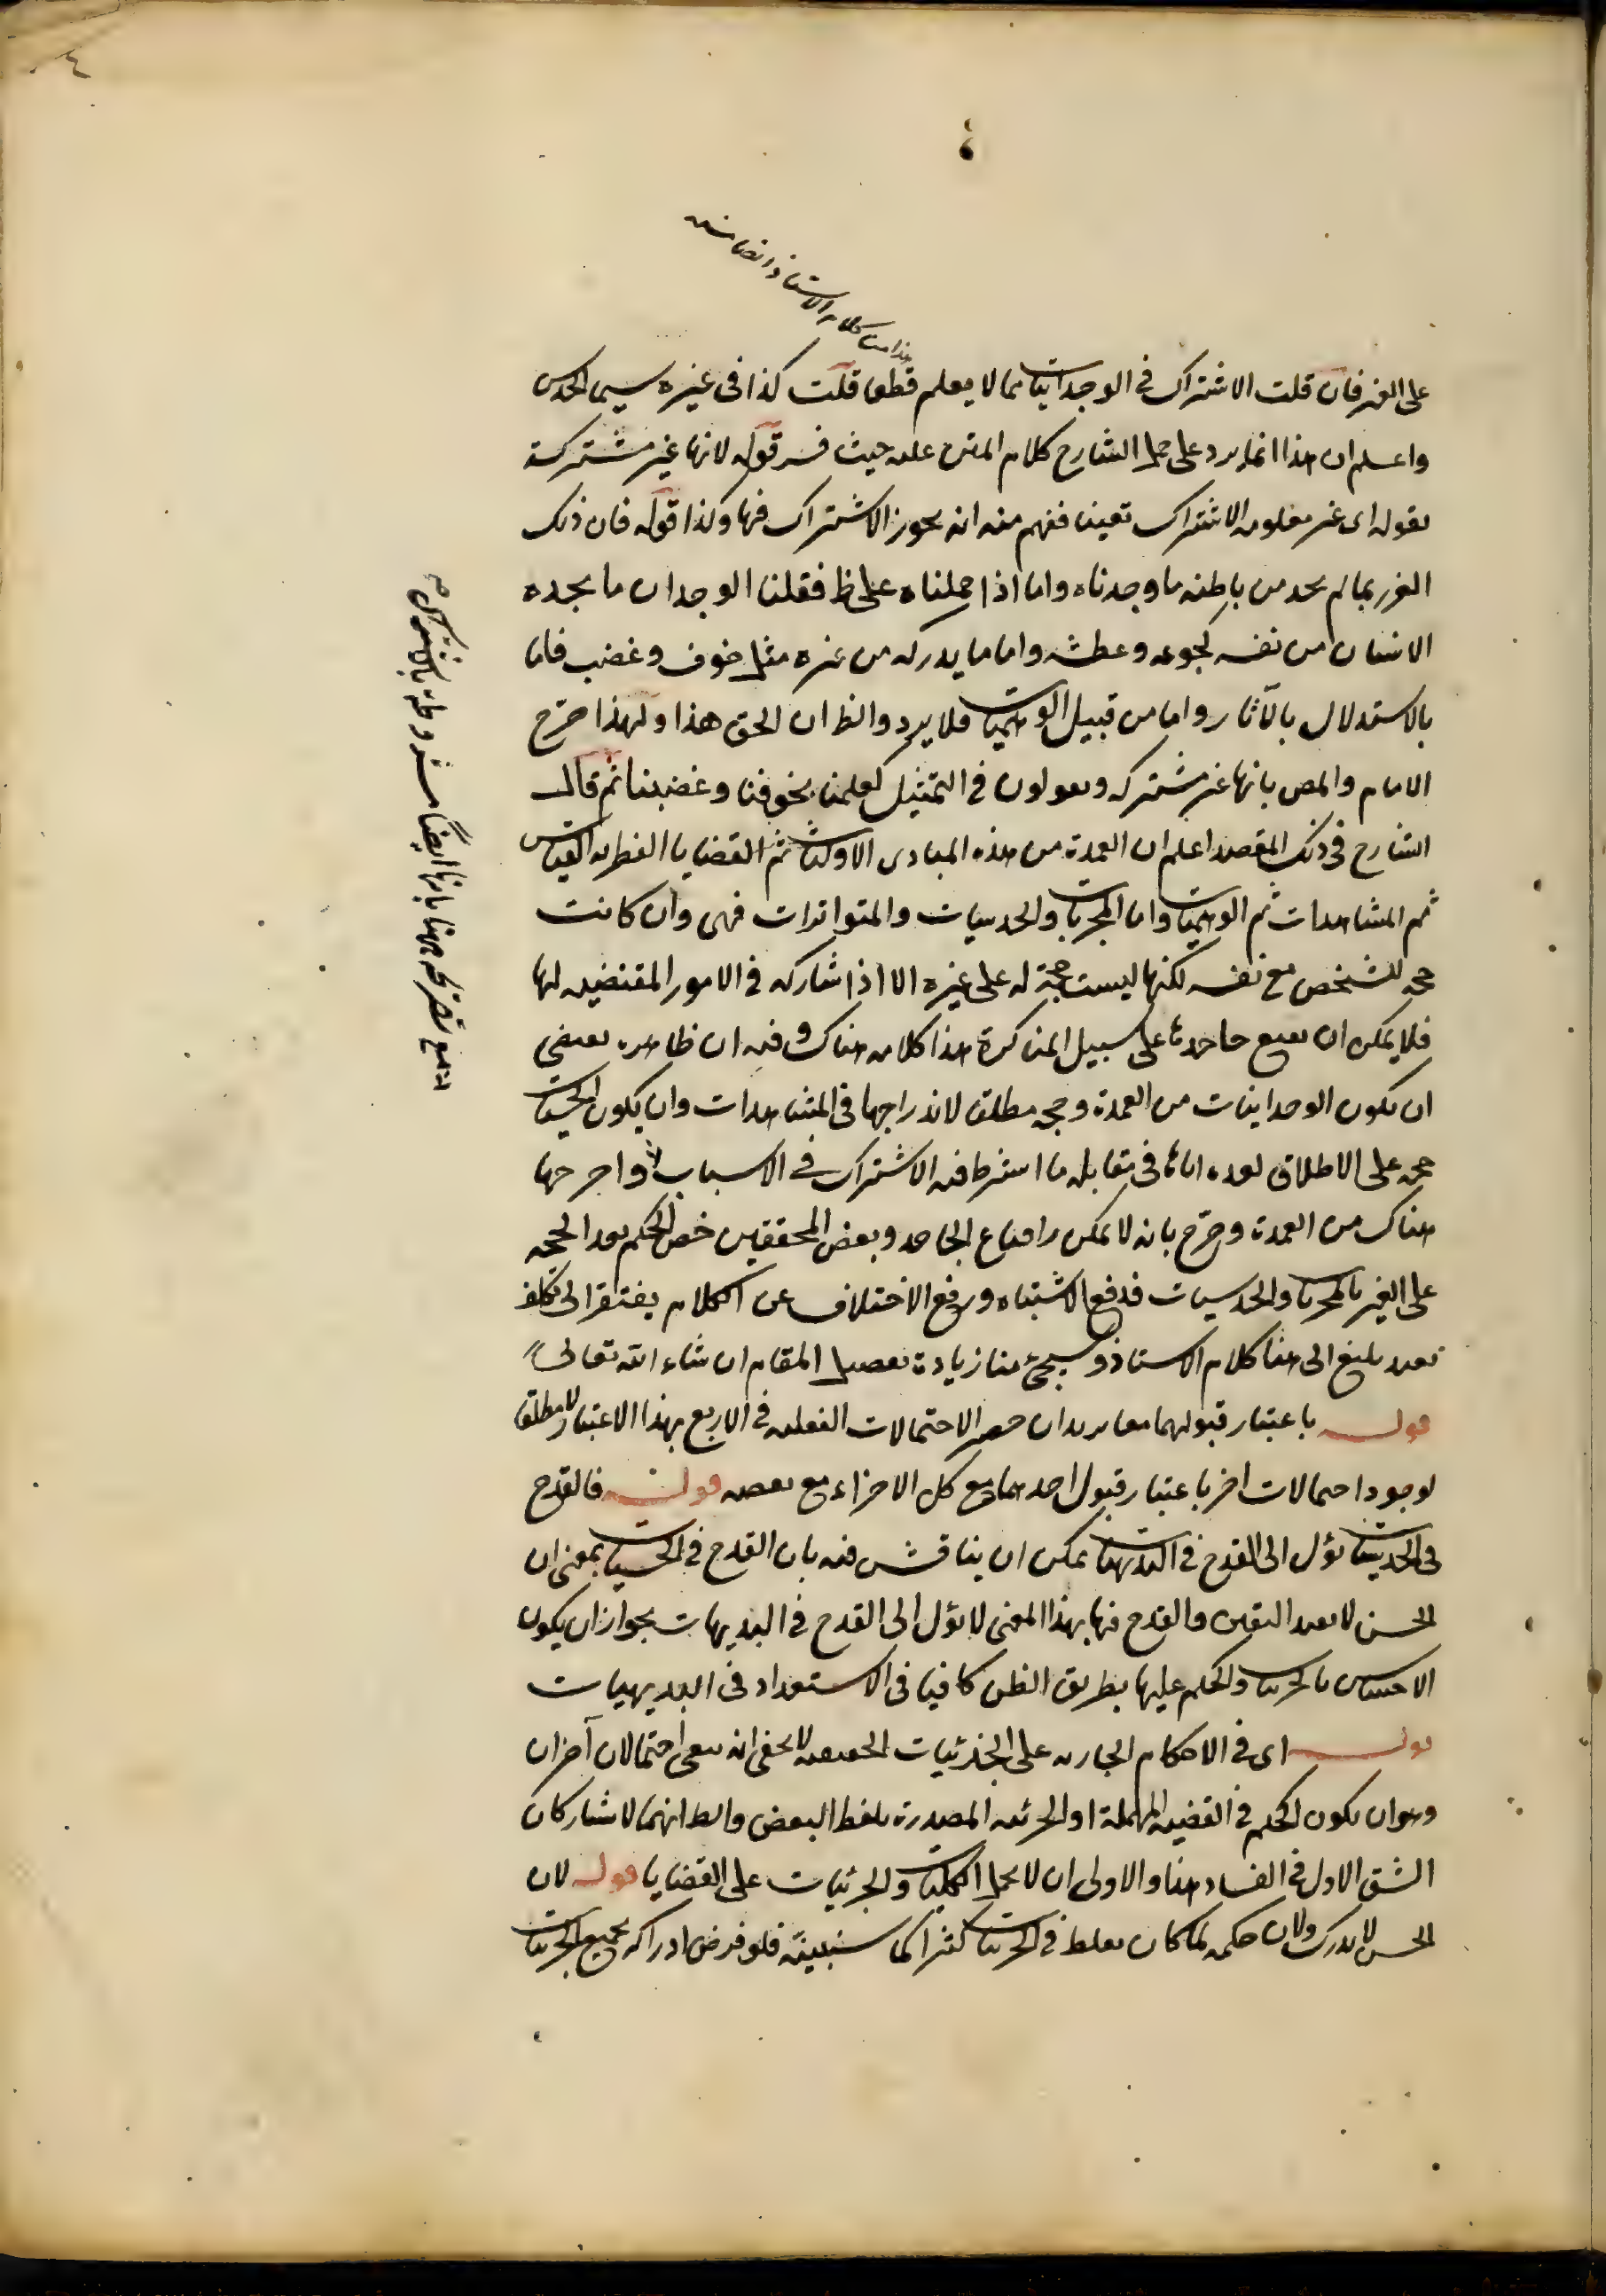 ٤
٤
هذا من كلام الاستاذ ايضا منه
على الغير فان قلت الاشتراك في الوجدانيات مما لا يعلم قطعا قلت كذا في غيره سيما الحدس
واعلم ان هذا انما يرد على حمل الشارح كلام المتن عليه حيث فسر قوله لانها غير مشتركة
بقوله اى غير معلومه الاشتراك تعينا ففهم منه انه يجوز الاشتراك فيها وكذا قوله فان ذلك
الغير ربما لم يجد من باطنه ما وجدناه واما اذا حملناه على ظ فقلنا الوجدان ما يجده
الانسان من نفسه كجوعه وعطشه واما ما يدركه من غيره مثل خوف وغضب فاما
بالاستدلال بالآثار واما من قبيل الوهميات فلا يرد والظ ان الحق هذا ولهذا صرّح
الامام والمص بانها غير مشتركه ويعولون في التمثيل كعلمنا بخوفنا وغضبنا ثم قال
الشارح في ذلك المقصد اعلم ان العمدة من هذه المبادى الاوليات ثم القضايا الفطريه القياس
ثم المشاهدات ثم الوهميات واما المجربات والحدسيات والمتواترات فهى وان كانت
حجه للشخص مع نفسه لكنها ليست حجة له على غيره الا اذا شاركه في الامور المقتضيه لها
فلا يمكن ان يقنع جاحدها على سبيل المناكرة هذا كلامه هناك وفيه ان ظاهره يقتضى
ان يكون الوجدانيات من العمدة وحجه مطلقا لاندراجها في المشاهدات وان يكون الحسيات
حجه على الاطلاق لعده اياها في مقابله ما اشترط فيه الاشتراك في الاسباب واخرجها
هناك من العمدة وصرّح بانه لا يمكن اقناع الجاحد وبعض المحققين خص الحكم بعدم الحجه
على الغير بالمجربات والحدسيات فدفع الاشتباه ورفع الاختلاف عن الكلام يفتقر الى تكلف
بعيد بلغ الى هنا كلام الاستاذ وسيجئ منا زيادة تفصيل المقام ان شاء الله تعالى
قوله باعتبار قبولهما معا يريد ان حصر الاحتمالات العقليه في الاربع بهذا الاعتبار لا مطلقا
لوجود احتمالات اخر باعتبار قبول احدهما مع كل الاجزاء مع بعضه قوله فالقدح
في الحسيات يؤل الى القدح في البديهيات يمكن ان يناقش فيه بان القدح في الحسيات بمعنى ان
الحس لا يفيد اليقين والقدح فيها بهذا المعنى لا يؤل الى القدح في البديهات بجواز ان يكون
الاحساس بالجزئيات والحكم عليها بطريق الظن كافيا في الاستعداد في البديهيات
قوله اى في الاحكام الجاريه على الجزئيات الحقيقيه لا يخفى انه يبقى احتمالان آخران
وهو ان يكون الحكم في القضيه المهملة او الجزئيه المصدرة بلفظ البعض والظ انهما لا يشاركان
الشق الاول في الفساد هنا والاولى ان لا يحمل الكليات والجزئيات على القضايا قوله لان
الحس لا يدرك ولان حكمه لما كان يغلط في الجزئيات كثيرا كما سنبينه فلو فرض ادراكه بجميع الجزئيات